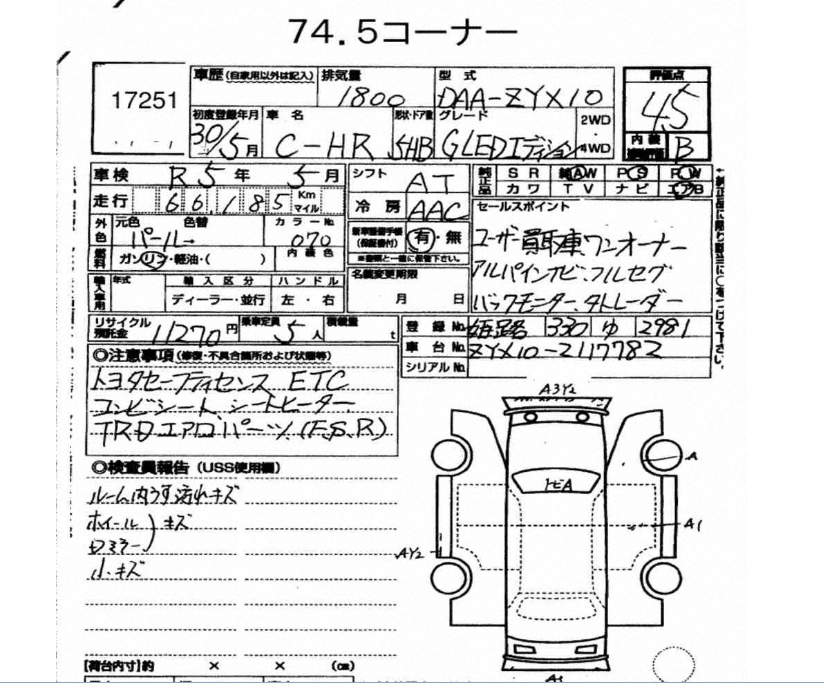 74.5コーナー
17251
車歴 (自家用以外は記入) 排気量 1800 型式 DAA-ZYX10 評価点 4.5
初度登録年月 30/5月 車名 C-HR 形状・ドア数 5HB グレード GLEDエディション 2WD 4WD 内装 B
車検 R5年 5月 シフト AT 純正品 SR 純AW PS PW
カワ TV ナビ エアB
走行 66,185 Km マイル 冷房 AAC
セールスポイント
外色 元色 パール→ 色替 カラーNo. 070 内装色
(保証書付) 有・無
ユーザー買取車ワンオーナー
アルパインナビ、フルセグ
バックモニター、
燃料 ガソリン・軽油・( )
※書類と一緒に保管下さい。
名義変更期限 月 日
輸入車用 年式 輸入区分 ハンドル
ディーラー・並行 左・右
リサイクル預託金 11270円 乗車定員 5人 積載量 t
登録No. 姫路 330 ゆ 2981
車台No. ZYX10-2117782
シリアルNo.
◎注意事項 (修復・不具合箇所および状態等)
トヨタセーフティセンス ETC
コンビシート、シートヒーター
TRDエアロパーツ (F,S,R)
◎検査員報告 (USS使用欄)
ルーム内うす汚れキズ
ホイール キズ
ドミラー
小キズ
A3Y2
A
トビA
A1
AY2
【荷台内寸】約 × × (cm)